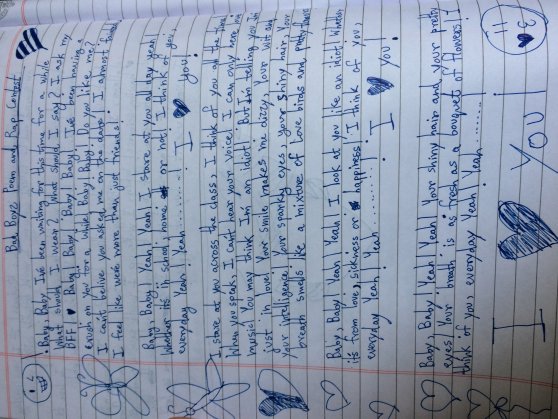 Bad Boyz Poem and Rap Contest
Baby Baby I've been waiting for this time for a while
What should I wear? What should I say? I ask my
BFF! Baby! Baby! Baby! Baby! I've been having a
crush on you for a while Baby! Baby! Do you like me?
I can't belive you asked me on the date. I almost
I feel like were more than just friends!
Baby, Baby! Yeah! Yeah! I stare at you all day yeah!
Whether its in school, home or not I think of you
everyday Yeah! Yeah.........! I you!
I stare at you across the class, I think of you all the time
When you speak, I can't hear your voice I can only hear
music! You may think I'm an idiot! But I'm telling you I'm
just in love! Your smile makes me dizzy, Your wit and
Your intelligence, your sparkly eyes, your shiny hair Your
breath smells like a mixture of love birds and pretty
Baby, Baby! Yeah! Yeah! I look at you like an idiot! Wether
its from love, sickness or happiness! I think of you,
everyday yeah! Yeah.........! I you!
Baby, Baby! Yeah! Yeah! Your shiny hair and Your pretty
eyes Your breath is as fresh as a bouquet of flowers! I
think of you, everyday yeah! Yeah.......!
I YOU!